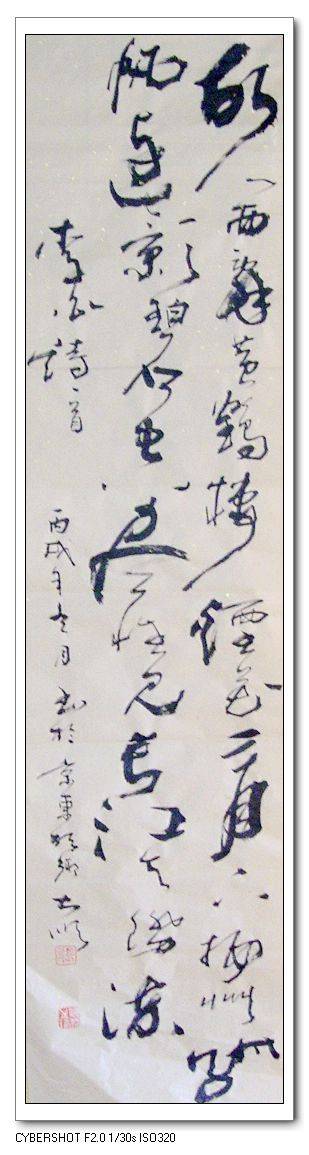 故人西辭黃鶴樓煙花三月下揚州孤
帆遠影碧空盡惟見長江天際流
李白詩一首
丙戌年冬月書於京東大順